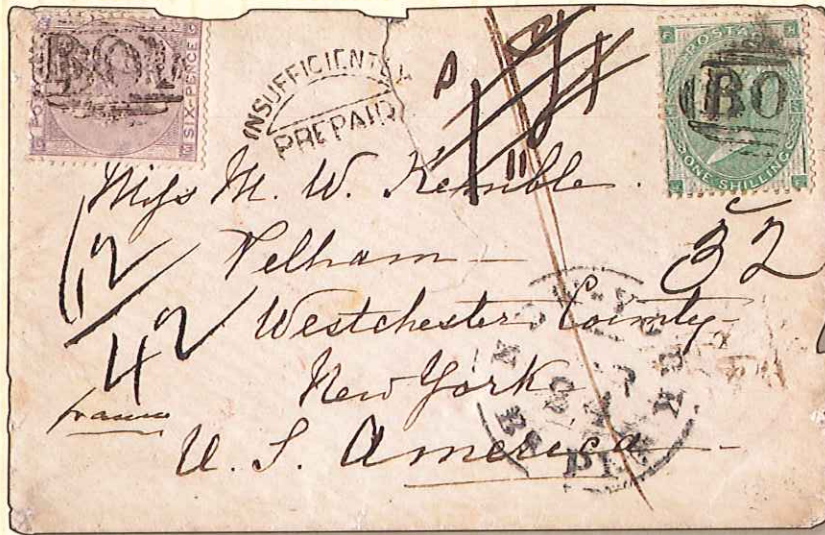 B01
SIX-PENCE
INSUFFICIENTLY
PREPAID
POSTAGE
B0
ONE SHILLING
Miss M. W. Kemble.
Pelham —
Westchester County —
New York
U. S. America —
12
42
32